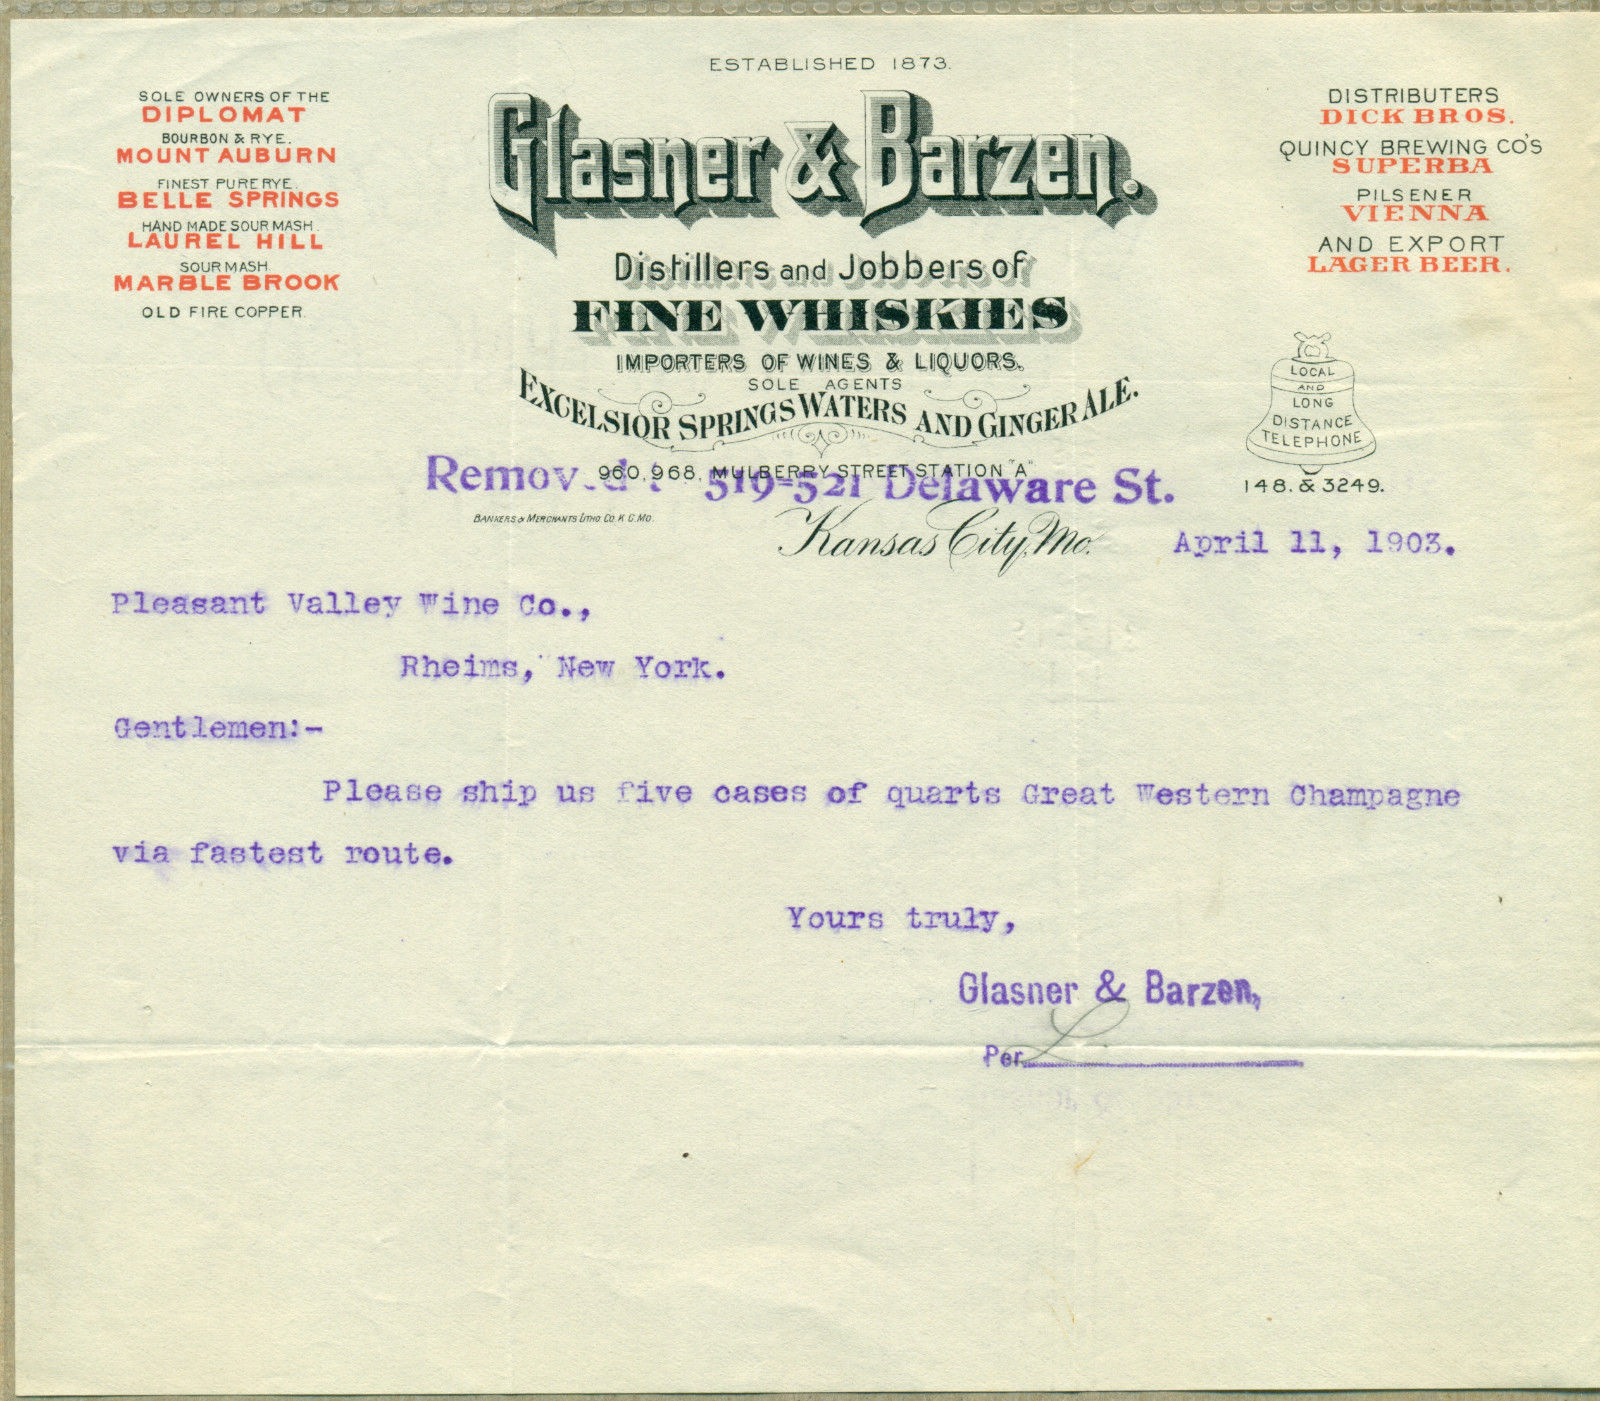 ESTABLISHED 1873.
SOLE OWNERS OF THE
DIPLOMAT
BOURBON & RYE.
MOUNT AUBURN
FINEST PURE RYE
BELLE SPRINGS
HAND MADE SOUR MASH.
LAUREL HILL
SOUR MASH
MARBLE BROOK
OLD FIRE COPPER.
Glasner & Barzen.
Distillers and Jobbers of
FINE WHISKIES
IMPORTERS OF WINES & LIQUORS.
SOLE AGENTS
EXCELSIOR SPRINGS WATERS AND GINGER ALE.
DISTRIBUTERS
DICK BROS.
QUINCY BREWING CO'S
SUPERBA
PILSENER
VIENNA
AND EXPORT
LAGER BEER.
LOCAL
AND
LONG
DISTANCE
TELEPHONE
148. & 3249.
960, 968, MULBERRY STREET STATION "A"
Removed: 519=521 Delaware St.
BANKERS & MERCHANTS LITHO. CO. K.C. MO.
Kansas City, Mo. April 11, 1903.
Pleasant Valley Wine Co.,
Rheims, New York.
Gentlemen:-
Please ship us five cases of quarts Great Western Champagne
via fastest route.
Yours truly,
Glasner & Barzen,
Per L